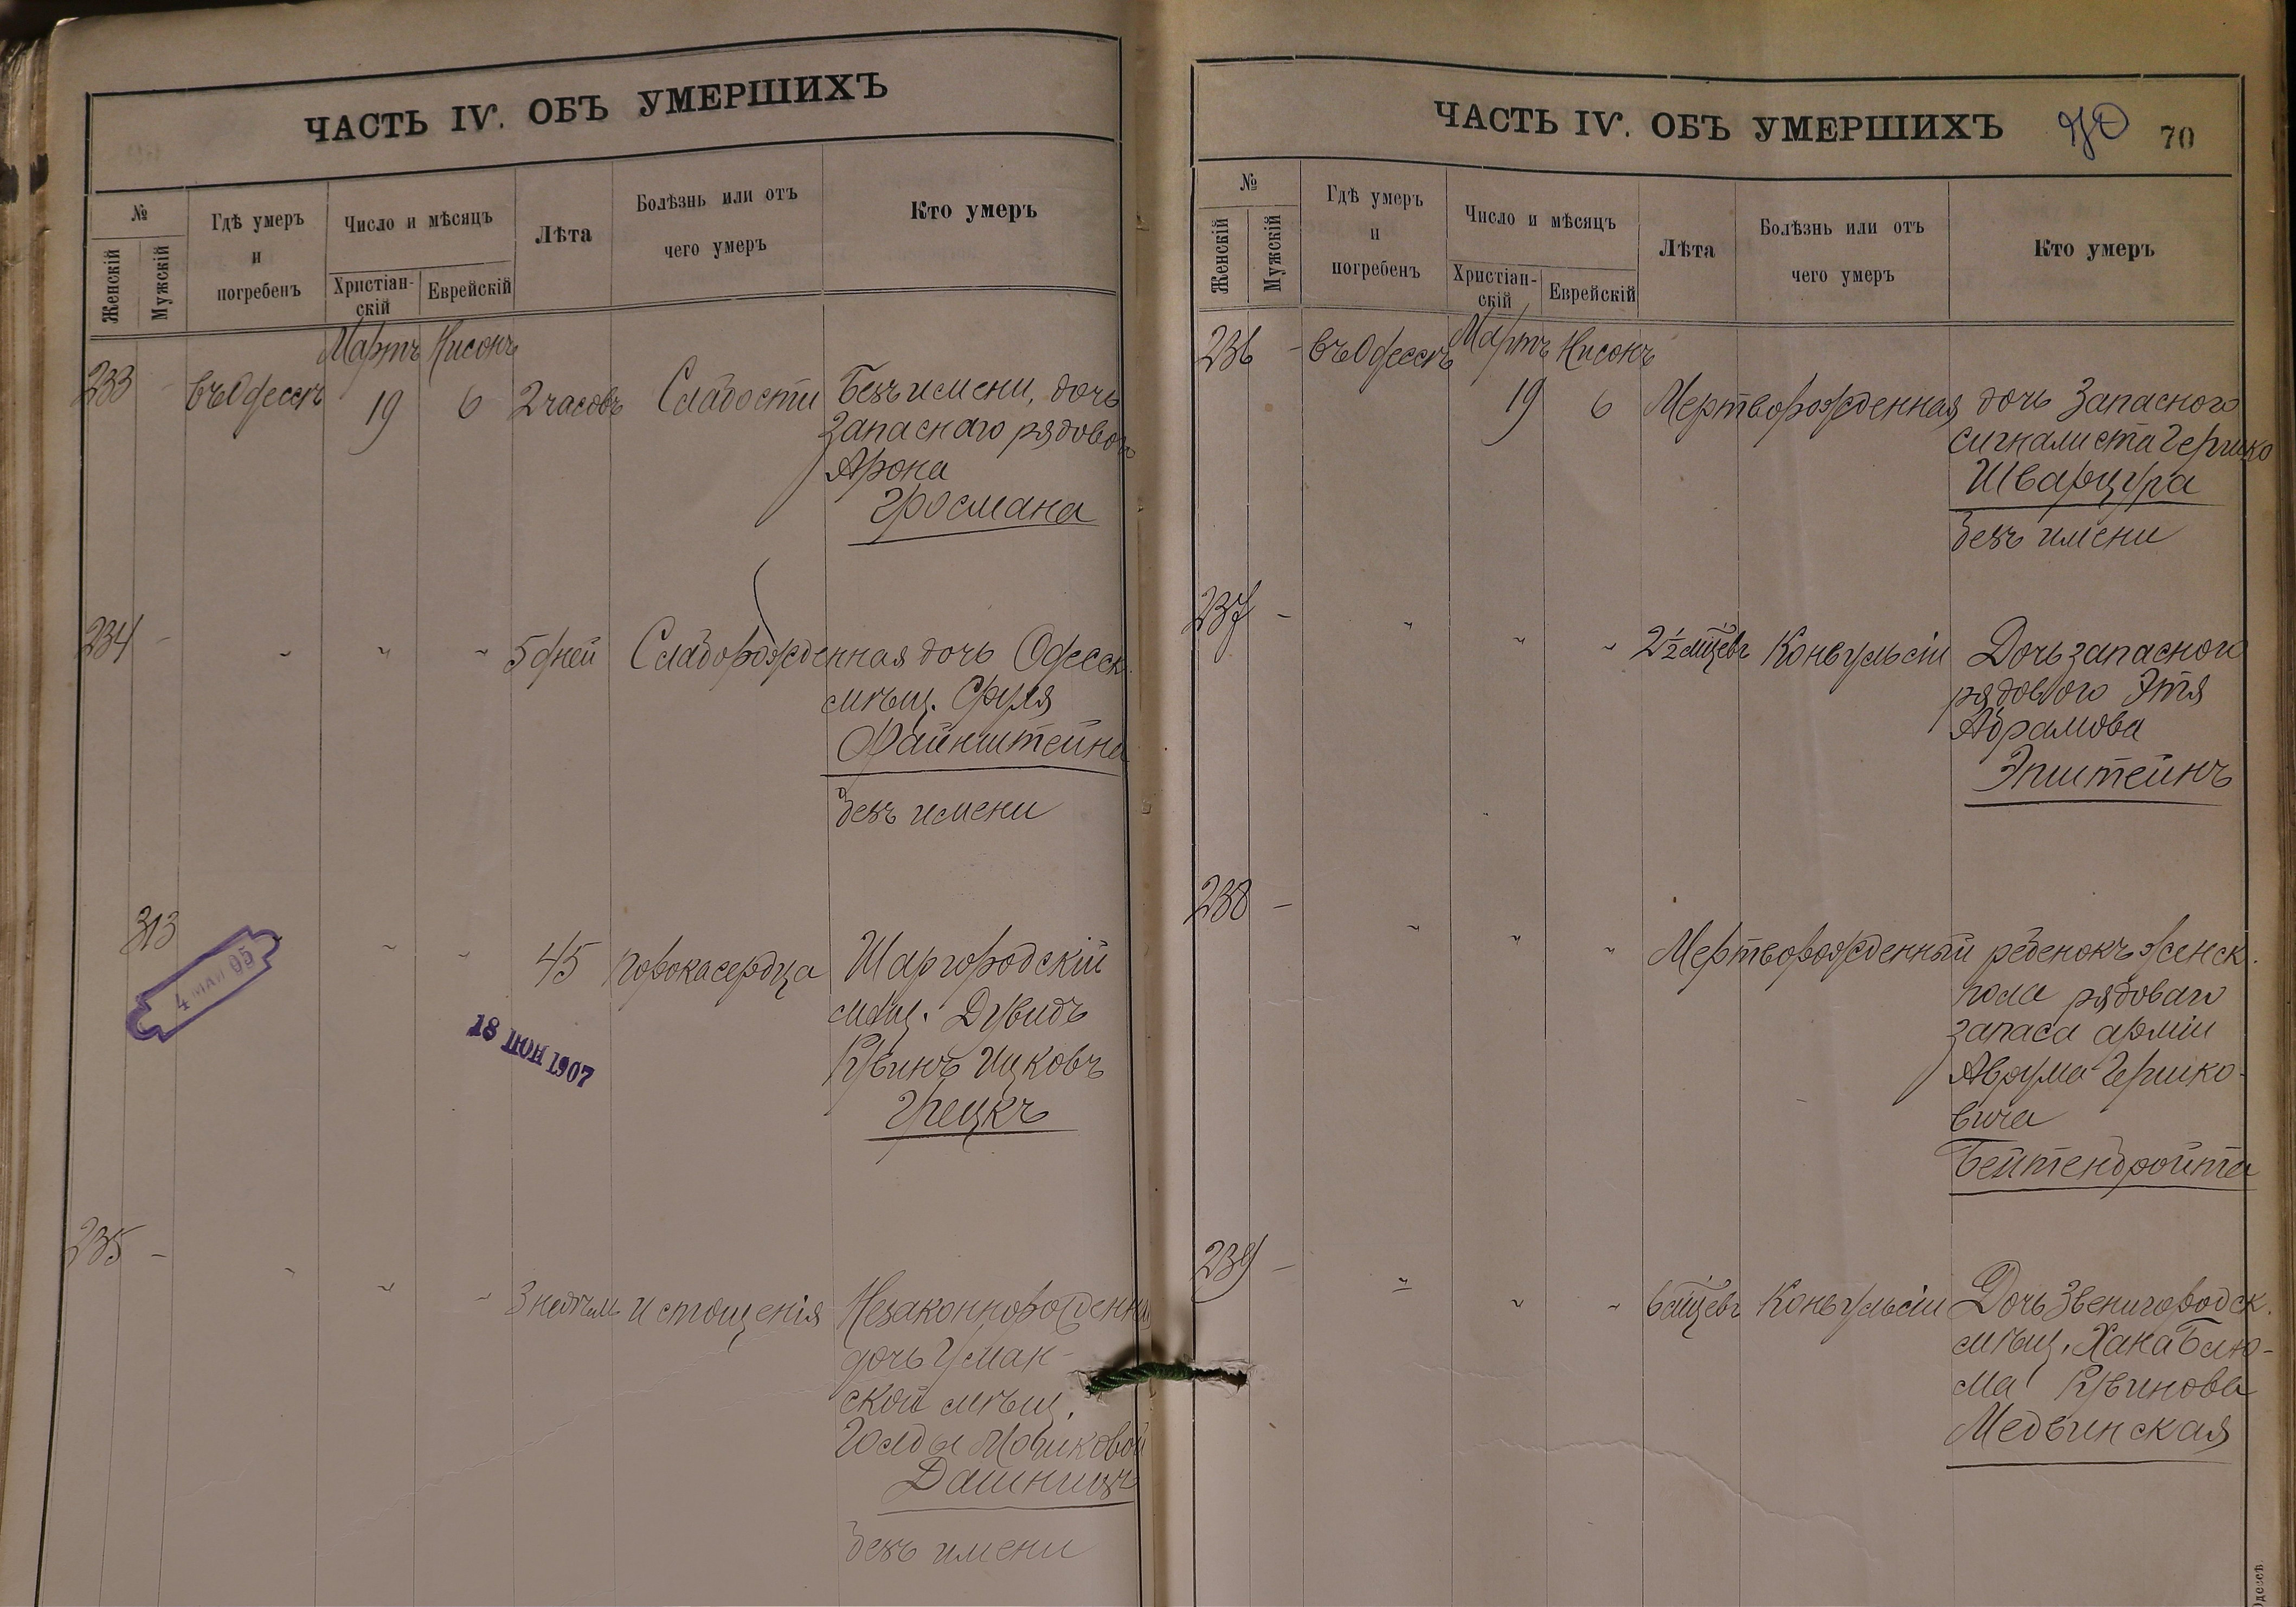 ЧАСТЬ IV. ОБЪ УМЕРШИХЪ
№
Женскій
Мужскій
Гдѣ умеръ
и
погребенъ
Число и мѣсяцъ
Христіан-
скій
Еврейскій
Лѣта
Болѣзнь или отъ
чего умеръ
Кто умеръ
Мартъ Нисонъ
233 - въ Одессѣ 19 6 2 часовъ Слабости Безъ имени, дочь
запаснаго рядового
Арона
Гросмана
234 - " " " 5 дней Слаборожденная дочь Одесск.
мѣщ. Сруля
Файнштейна
безъ имени
313 " " 45 порока сердца Шаргородскій
мѣщ. Дувидъ
Рувинъ Ицковъ
Грецкъ
4 МАЙ 95
18 ІЮН 1907
235 - " " " 3 недѣль истощенія Незаконнорожденная
дочь Уман-
ской мѣщ.
Голды Мовшковой
безъ имени
ЧАСТЬ IV. ОБЪ УМЕРШИХЪ 70 70
№
Женскій
Мужскій
Гдѣ умеръ
и
погребенъ
Число и мѣсяцъ
Христіан-
скій
Еврейскій
Лѣта
Болѣзнь или отъ
чего умеръ
Кто умеръ
Мартъ Нисонъ
236 - въ Одессѣ 19 6 Мертворожденная дочь запасного
сигналиста Гершко
Шварцура
безъ имени
237 - " " " 2½ мѣсцевъ Конвульсіи Дочь запасного
рядового Этя
Абрамова
Эпштейнъ
238 - " " " Мертворожденный ребенокъ женск.
пола рядоваго
запаса арміи
Аврума Гершко-
вича
Бейтендройта
239 - " " " 6 мѣсцевъ Конвульсіи Дочь Звенигородск.
мѣщ. Хана Блю-
ма Рувинова
Медвинская